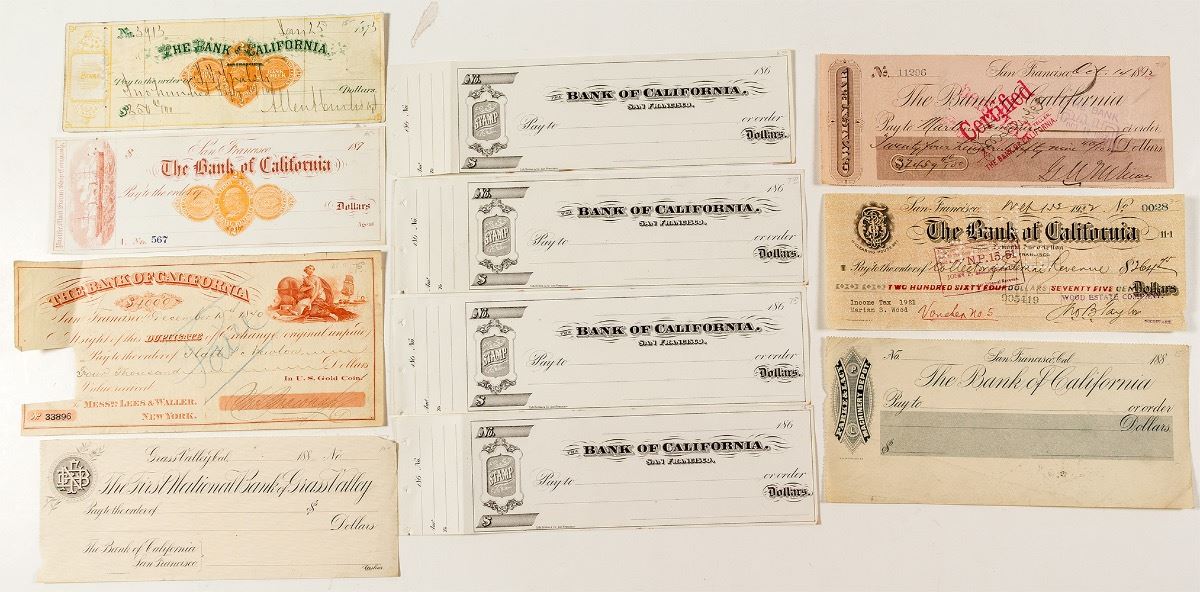 No. 3913 Jany 25 1875
THE BANK OF CALIFORNIA
Pay to the order of
Two hundred
Dollars.
$250 00/100
San Francisco 187
The Bank of California
Pay to the order of
Dollars
Agent
No. 567
$
THE BANK OF CALIFORNIA
$4000
San Francisco December
At sight of this DUPLICATE of exchange (original unpaid)
Pay to the order of
Four Thousand Dollars
Value received In U.S. Gold Coin.
To MESSRS LEES & WALLER,
NEW YORK.
No 33896
Grass Valley, Cal. 188 No.
The First National Bank of Grass Valley
Pay to the order of $
Dollars
The Bank of California
San Francisco.
Cashier
No. 186
THE BANK OF CALIFORNIA,
SAN FRANCISCO.
STAMP
Pay to or order
Dollars.
$
No. 186
THE BANK OF CALIFORNIA,
SAN FRANCISCO.
STAMP
Pay to or order
Dollars.
$
No. 186
THE BANK OF CALIFORNIA,
SAN FRANCISCO.
STAMP
Pay to or order
Dollars.
$
No. 186
THE BANK OF CALIFORNIA,
SAN FRANCISCO.
STAMP
Pay to or order
Dollars.
$
No. 11296 San Francisco, Oct 14 1892
The Bank of California
Certified
THE BANK OF CALIFORNIA
Pay to or order
Twenty four hundred fifty nine Dollars
$2459
San Francisco, 1922 No 0028
The Bank of California 11-1
Pay to the order of Collector Internal Revenue $264 75
TWO HUNDRED SIXTY FOUR DOLLARS SEVENTY FIVE CENTS Dollars
005119 WOOD ESTATE COMPANY
Income Tax 1921
Marian S. Wood
Voucher no 5
Jno B Taylor
No. San Francisco, Cal. 188
The Bank of California
PARKE & LACY
MACHINERY DEPOT
Pay to or order
Dollars
$